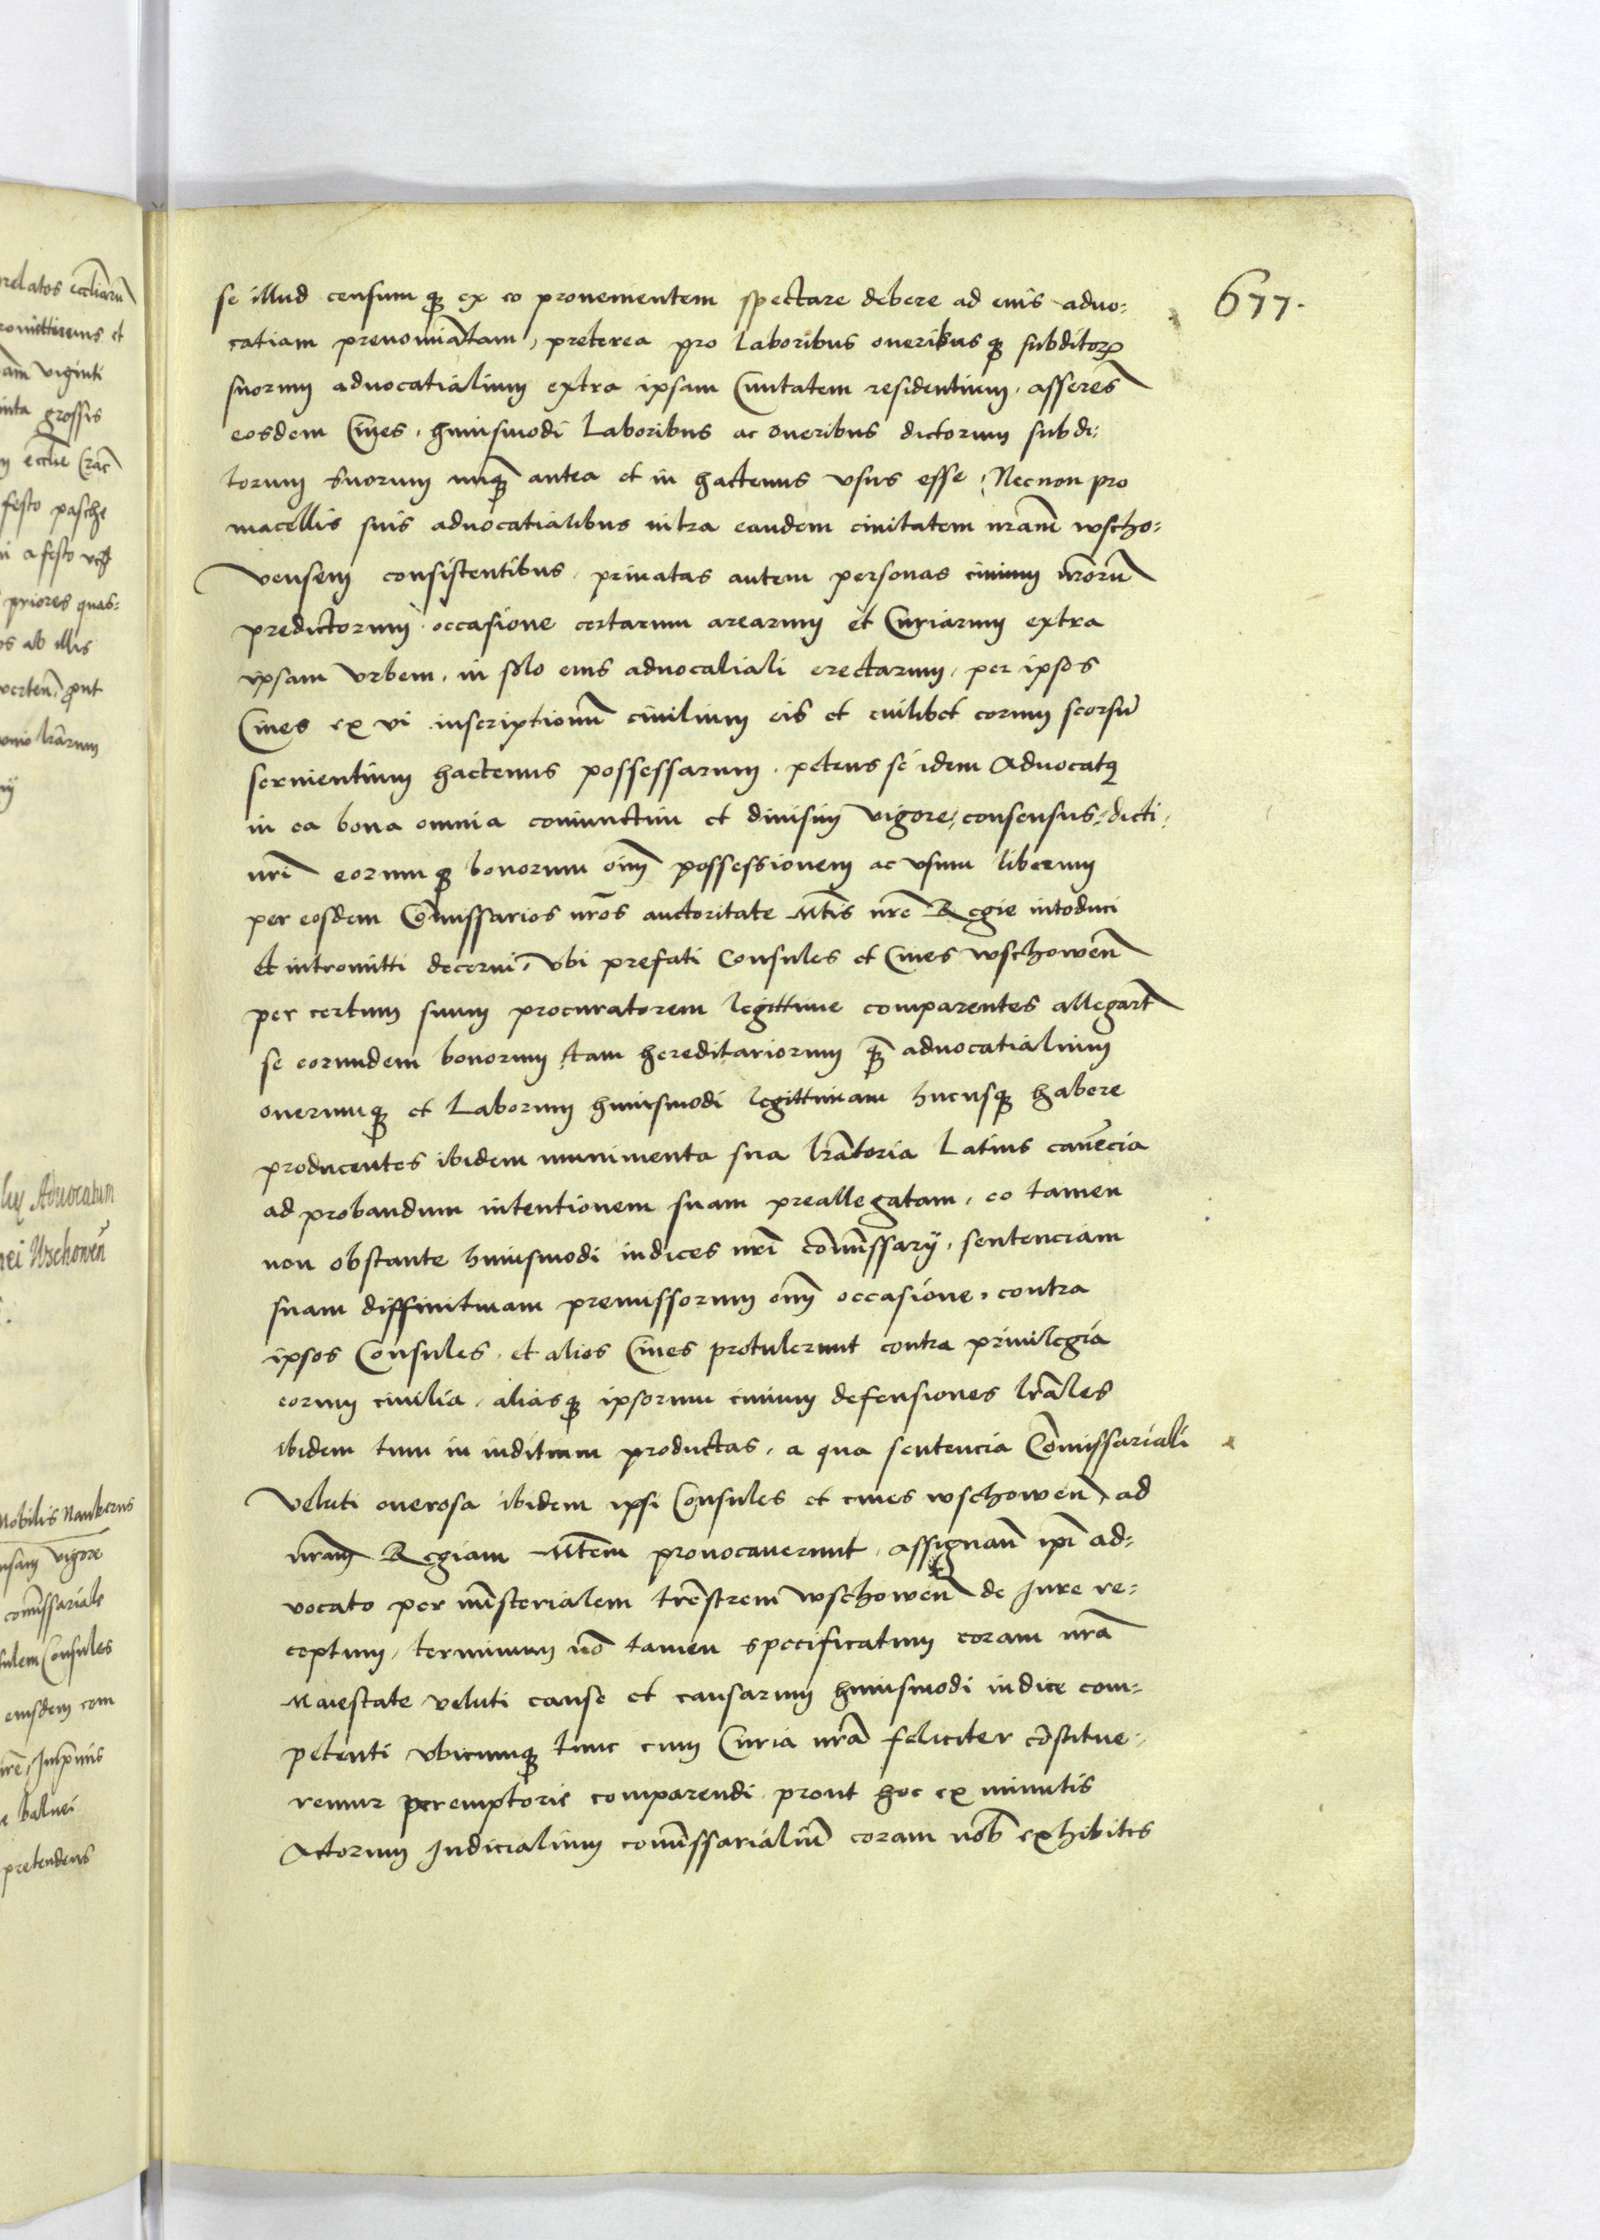 677.
se illud censum q̃ ex eo provenientem spectare debere ad eius advo:
catiam prenomiãtam, preterea pro laboribus oneribus q̃ subditorꝝ
suorum advocatialium extra ipsam Civitatem residentium, asseren̄
eosdem Cives, huiusmodi Laboribus ac oneribus dictorum subdi:
torum suorum nunq̃ antea et in hactenus usus esse, Necnon pro
macellis suis advocatialibus intra eandem civitatem nr̃am wscho:
vensem consistentibus, privatas autem personas civium nr̃orũ
predictorum, occasione certarum arearum et Curiarum extra
ipsam Urbem, in solo eius advocatiali erectarum, per ipsos
Cives ex vi inscriptionũ civilium eis et cuilibet eorum seorsũ
servientium hactenus possessarum, petens se idem Advocatꝰ
in ea bona omnia coniunctim et divisim vigore consensus dicti
nr̃i eorum q̃ bonorum om̃ possessionem ac usum liberum
per eosdem Com̃issarios nr̃os auctoritate Mt̃is nr̃e Regie intoduci
et intromitti decerni, Ubi prefati Consules et Cives wschowen̄
per certum suum procuratorem legittime comparentes allegarũt
se eorundem bonorum tam hereditariorum q̃ advocatialium
onerumq̃ et Laborum huiusmodi legittimam hucusq̃ habere
producentes ibidem munimenta sua lr̃atoria Latius cavẽcia
ad probandum intentionem suam preallegatam, eo tamen
non obstante huiusmodi iudices nr̃i com̃issarÿ, sentenciam
suam diffinitivam premissorum om̃ occasione, contra
ipsos Consules, et alios Cives protulerunt contra privilegia
eorum civilia, aliasq̃ ipsorum civium defensiones lr̃ales
ibidem tum in iuditium productas, a qua sentencia Com̃issariali
Veluti onerosa ibidem ipsi Consules et cives wschowen̄ ad
nr̃am Regiam Mt̃em provocaverunt, assignan̄ ip̃i ad:
vocato per mĩsterialem tr̃estrem wschowen̄ de Jure re:
ceptum, terminum nõ tamen specificatum coram nr̃a
Maiestate veluti cause et causarum huiusmodi iudice com:
petenti ubicumq̃ tunc cum Curia nr̃a feliciter cõstitue:
remur peremptorie comparendi prout hoc ex minutis
Actorum Judicialium com̃issarialiũ coram nob̃ exhibitis